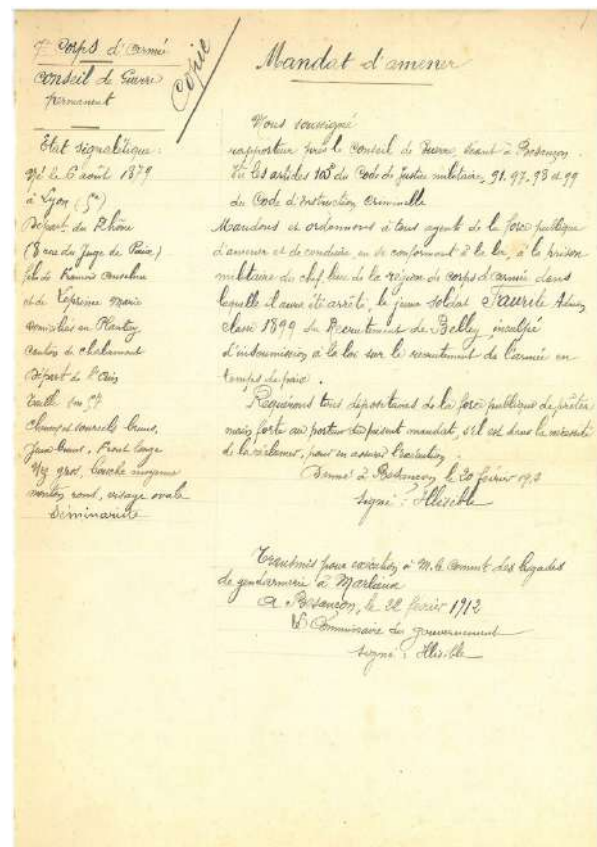 7e Corps d'Armée
Conseil de Guerre
permanent
Copie
Etat signalétique :
Né le 6 août 1879
à Lyon (5e)
Départ. du Rhône
(8 rue du Juge de Paix)
fils de Francis Anselme
et de Marie
domiciliés au Plantay
canton de Chalamont
Départ. de l'Ain
Taille 1m 57
Cheveux et sourcils bruns,
Yeux bruns, Front large
Nez gros, bouche moyenne
menton rond, visage ovale
Séminariste
Mandat d'amener
Nous soussigné
rapporteur près le Conseil de Guerre, séant à Besançon.
Vu les articles du Code de Justice militaire, 91, 97, 98 et 99
du Code d'Instruction Criminelle
Mandons et ordonnons à tous agents de la force publique
d'amener et de conduire, en se conformant à la loi, à la prison
militaire du chef lieu de la région de corps d'armée dans
laquelle il aura été arrêté, le jeune soldat Faurite
classe 1899 du Recrutement de Belley, inculpé
d'insoumission à la loi sur le recrutement de l'armée en
temps de paix.
Requérons tous dépositaires de la force publique de prêter
main forte au porteur du présent mandat, s'il est dans la nécessité
de la réclamer, pour en assurer l'exécution.
Donné à Besançon le 20 février
Signé : Illisible
Transmis pour exécution à M. le Commt des brigades
de gendarmerie à Marlieux
A Besançon, le 22 février 1912
Le Commissaire du gouvernement
Signé : Illisible